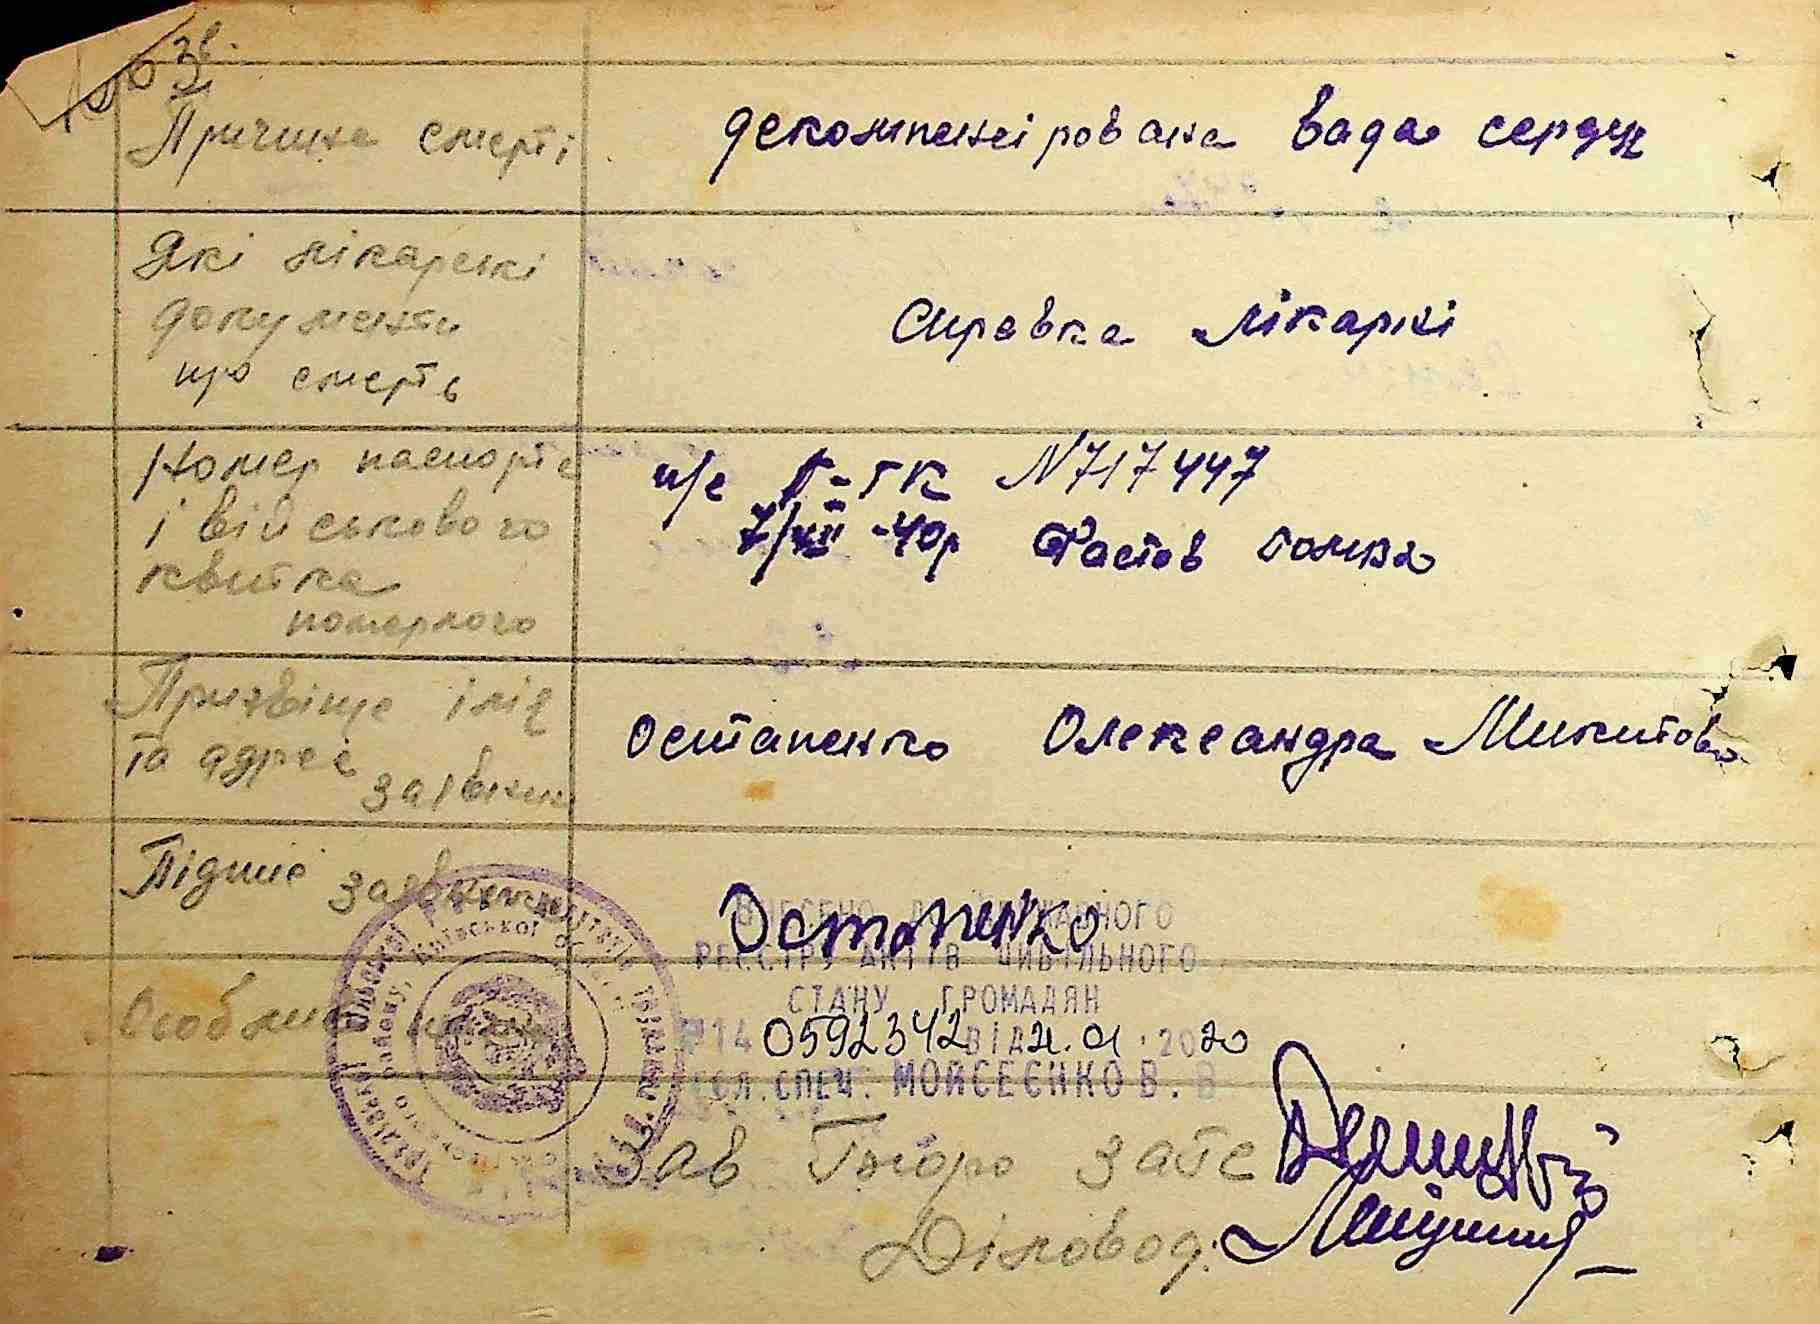 зв.
Причина смерті декомпенсірована вада серця
Які лікарські
документи
про смерть
Справка лікарні
Номер паспорта
і військового
квитка
померлого
п/с ГК №717447
7/XII -40р Фастов
Призвіще імя
та адрес
заявника
Остапенко Олександра Микитовна
Підпис заявника
Остапенко
ВНЕСЕНО ДО ДЕРЖАВНОГО
РЕЄСТРУ АКТІВ ЦИВІЛЬНОГО
СТАНУ ГРОМАДЯН
№14 0592342 ВІД 21.01.2020
ГОЛ.СПЕЦ. МОЙСЕЄНКО В. В
Київської
Зав Бюро загс
Діловод.